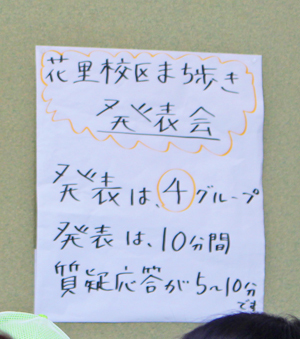 花里校区まち歩き
発表会
発表は、4グループ
発表は、10分間
質疑応答が5~10分
です